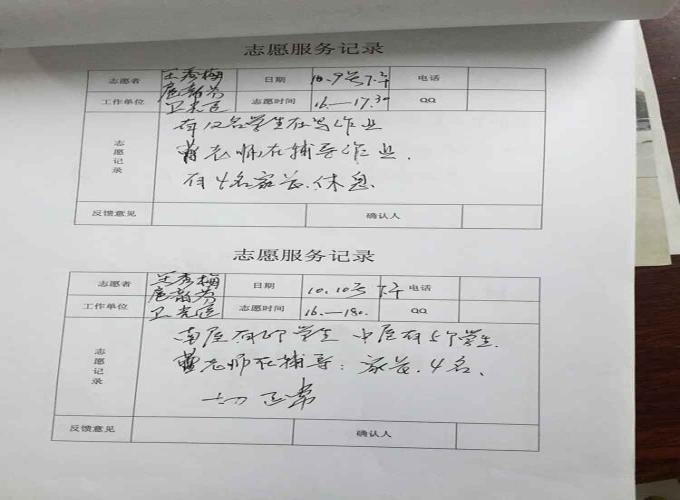 志愿服务记录
志愿者 王秀梅 日期 10.9号下午 电话
工作单位 卫光臣 志愿时间 16.—17.30 QQ
志愿记录
有12名学生在写作业
曹老师在辅导作业.
有4名家长.休息.
反馈意见 确认人
志愿服务记录
志愿者 王秀梅 日期 10.10号 下午 电话
工作单位 卫光臣 志愿时间 16.—180. QQ
志愿记录
南屋有 学生 中屋有5个学生.
曹老师在辅导: 家长.4名.
一切正常
反馈意见 确认人